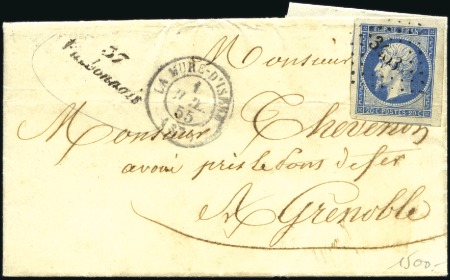 37
Valbonnais
LA MURE-D'ISÈRE
1
55
20 C POSTES 20 C
Monsieur
Monsieur Thevenon
avoué près les Dons de fer
A Grenoble
1500.-